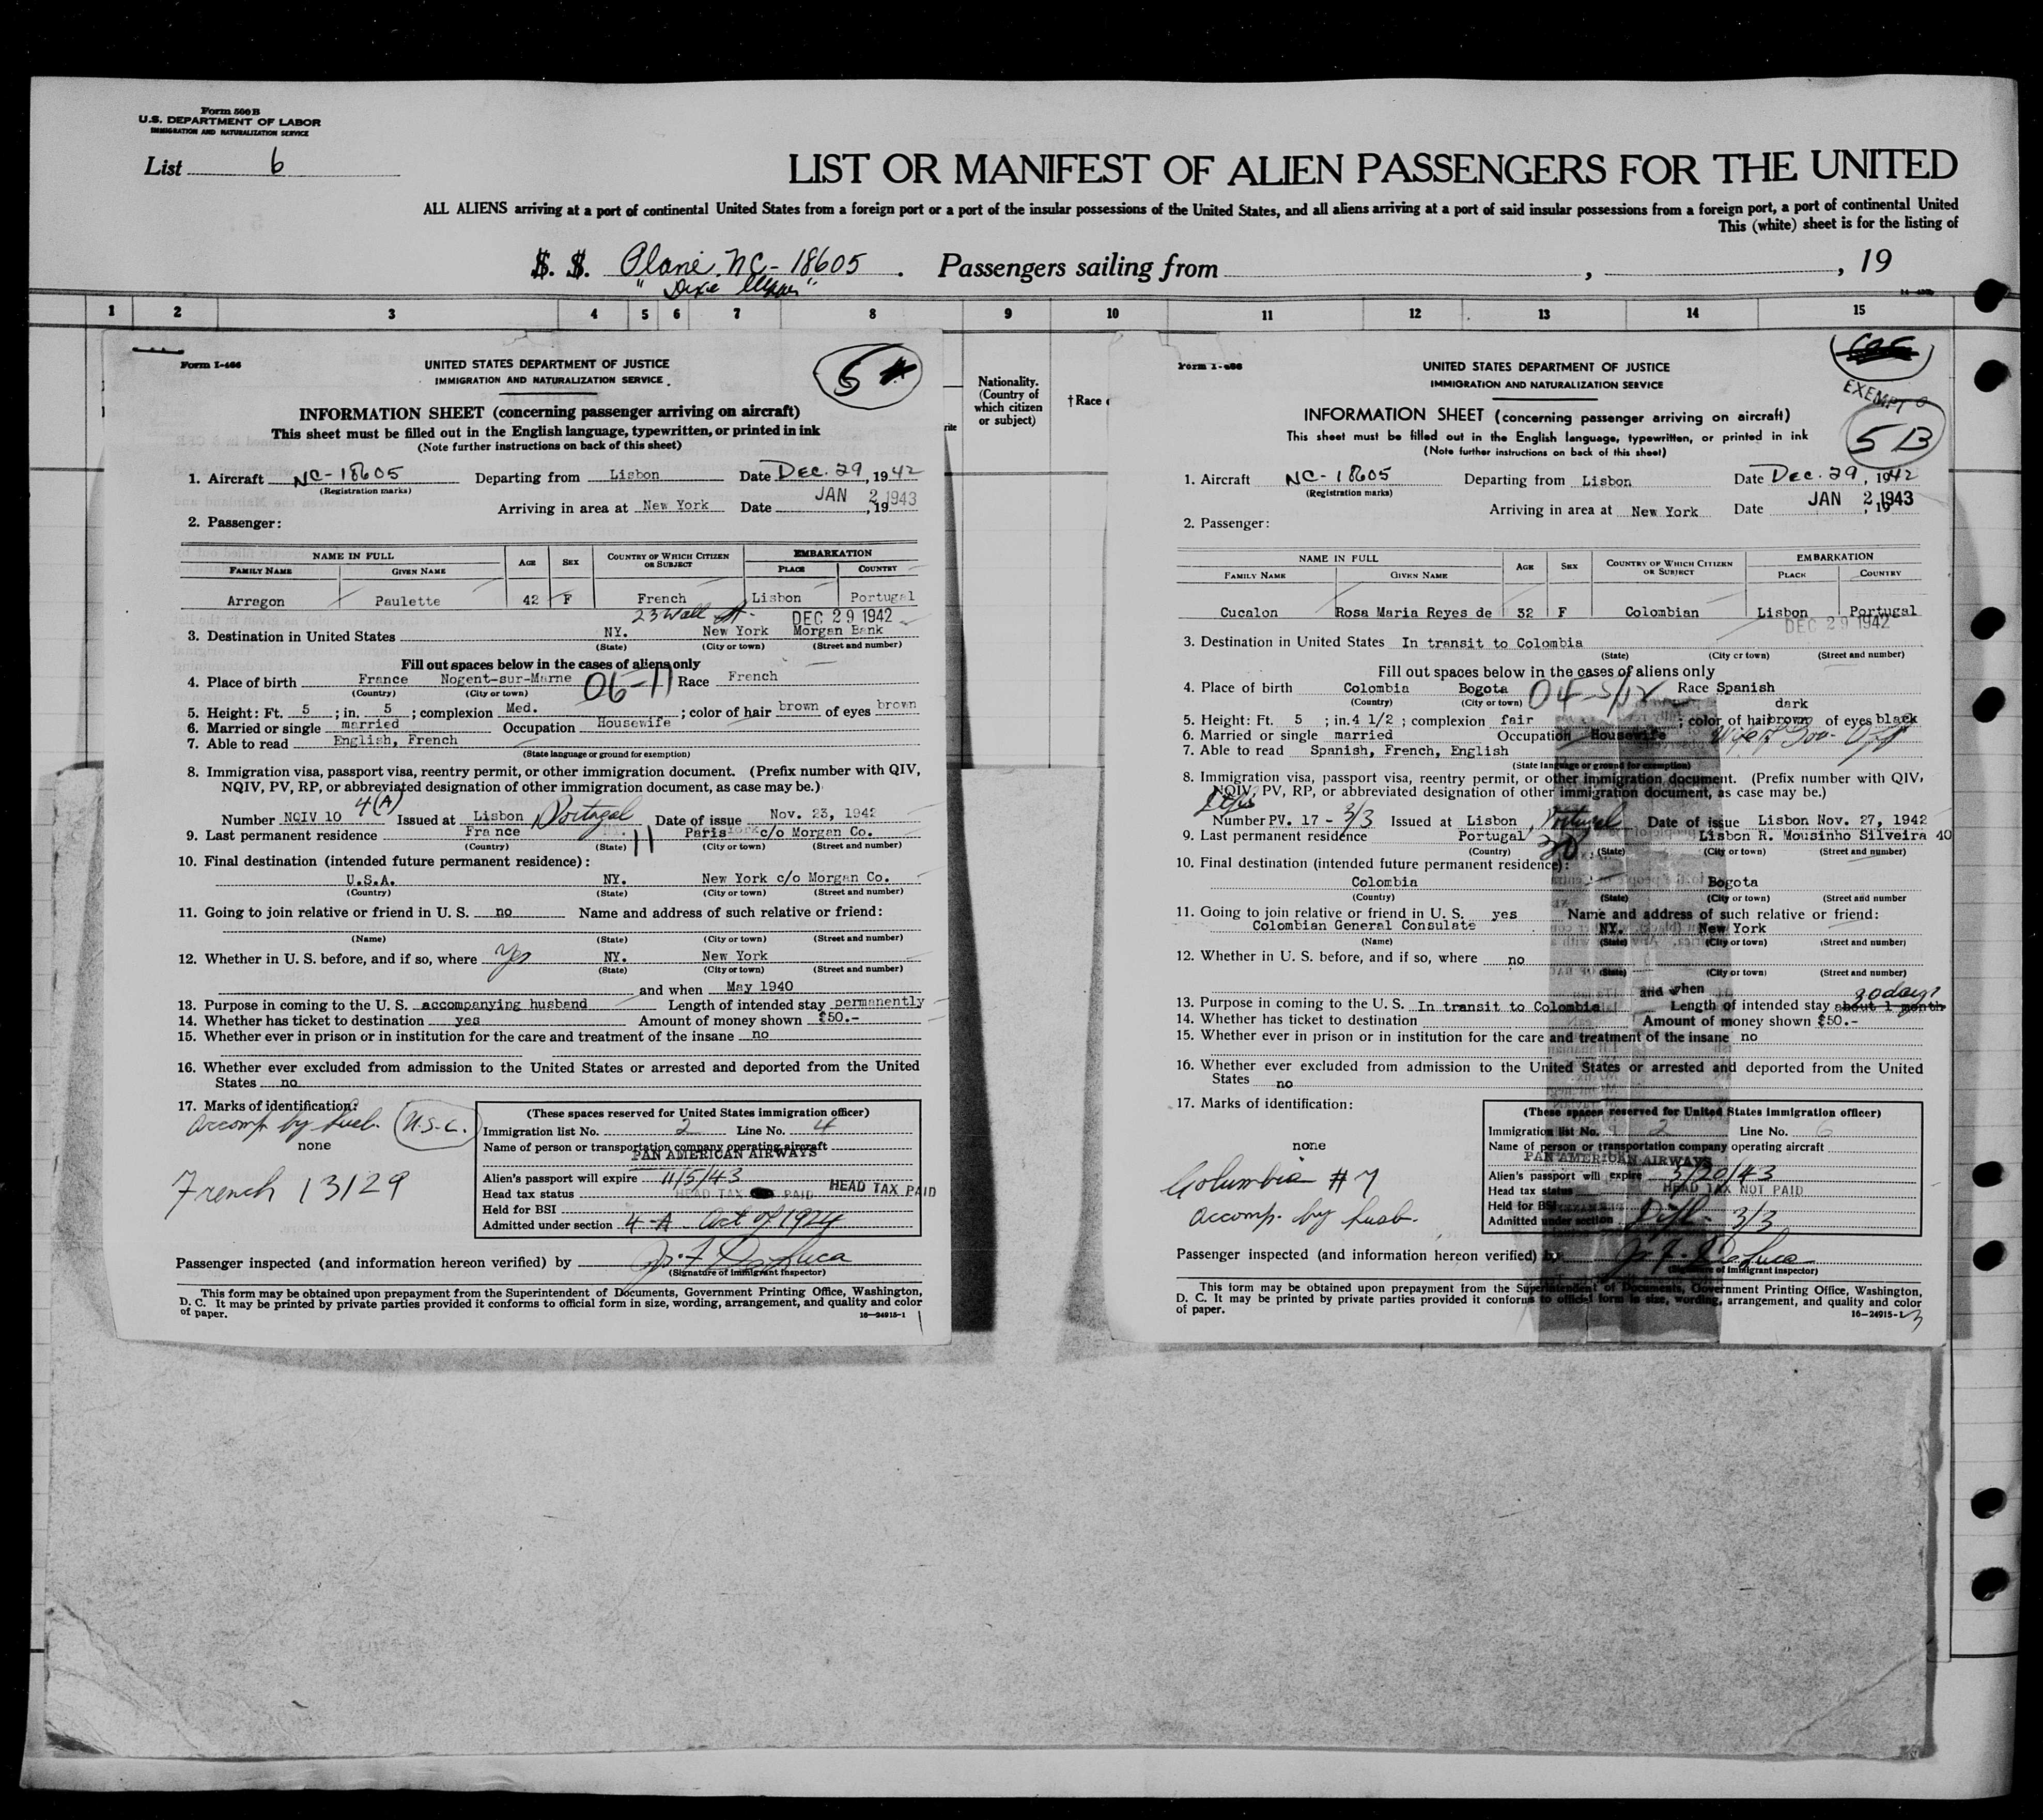 Form 500 B
U.S. DEPARTMENT OF LABOR
IMMIGRATION AND NATURALIZATION SERVICE
List 6
LIST OR MANIFEST OF ALIEN PASSENGERS FOR THE UNITED
ALL ALIENS arriving at a port of continental United States from a foreign port or a port of the insular possessions of the United States, and all aliens arriving at a port of said insular possessions from a foreign port, a port of continental United
This (white) sheet is for the listing of
S. S. Plane NC-18605. Passengers sailing from , , 19
"Dixie Clipper"
1 2 3 4 5 6 7 8 9 10 11 12 13 14 15
Nationality.
(Country of
which citizen
or subject)
†Race
Form I-466
UNITED STATES DEPARTMENT OF JUSTICE
IMMIGRATION AND NATURALIZATION SERVICE
5
INFORMATION SHEET (concerning passenger arriving on aircraft)
This sheet must be filled out in the English language, typewritten, or printed in ink
(Note further instructions on back of this sheet)
1. Aircraft NC-18605 Departing from Lisbon Date Dec. 29, 1942
(Registration marks)
Arriving in area at New York Date JAN 2 1943, 19
2. Passenger:
NAME IN FULL AGE SEX COUNTRY OF WHICH CITIZEN OR SUBJECT EMBARKATION
FAMILY NAME GIVEN NAME PLACE COUNTRY
Arragon Paulette 42 F French Lisbon Portugal
23 Wall St. DEC 29 1942
3. Destination in United States NY. New York Morgan Bank
(State) (City or town) (Street and number)
Fill out spaces below in the cases of aliens only
4. Place of birth France Nogent-sur-Marne 06-11 Race French
(Country) (City or town)
5. Height: Ft. 5 ; in. 5 ; complexion Med. ; color of hair brown of eyes brown
6. Married or single married Occupation Housewife
7. Able to read English, French
(State language or ground for exemption)
8. Immigration visa, passport visa, reentry permit, or other immigration document. (Prefix number with QIV,
NQIV, PV, RP, or abbreviated designation of other immigration document, as case may be.)
Number NQIV 10 4(A) Issued at Lisbon Portugal Date of issue Nov. 23, 1942
9. Last permanent residence France 11 Paris c/o Morgan Co.
(Country) (State) (City or town) (Street and number)
10. Final destination (intended future permanent residence):
U.S.A. NY. New York c/o Morgan Co.
(Country) (State) (City or town) (Street and number)
11. Going to join relative or friend in U. S. no Name and address of such relative or friend:
(Name) (State) (City or town) (Street and number)
12. Whether in U. S. before, and if so, where Yes NY. New York
(State) (City or town) (Street and number)
and when May 1940
13. Purpose in coming to the U. S. accompanying husband Length of intended stay permanently
14. Whether has ticket to destination yes Amount of money shown $50.-
15. Whether ever in prison or in institution for the care and treatment of the insane no
16. Whether ever excluded from admission to the United States or arrested and deported from the United
States no
17. Marks of identification:
Accomp by husb. U.S.C.
none
French 13129
(These spaces reserved for United States immigration officer)
Immigration list No. 2 Line No. 4
Name of person or transportation company operating aircraft
PAN AMERICAN AIRWAYS
Alien's passport will expire 11/5/43
Head tax status HEAD TAX PAID HEAD TAX PAID
Held for BSI
Admitted under section 4-A Act of 1924
Passenger inspected (and information hereon verified) by
(Signature of immigrant inspector)
This form may be obtained upon prepayment from the Superintendent of Documents, Government Printing Office, Washington,
D. C. It may be printed by private parties provided it conforms to official form in size, wording, arrangement, and quality and color
of paper.
16—24915-1
Form I-466
UNITED STATES DEPARTMENT OF JUSTICE
IMMIGRATION AND NATURALIZATION SERVICE
EXEMPT
5 B
INFORMATION SHEET (concerning passenger arriving on aircraft)
This sheet must be filled out in the English language, typewritten, or printed in ink
(Note further instructions on back of this sheet)
1. Aircraft NC-18605 Departing from Lisbon Date Dec. 29, 1942
(Registration marks)
Arriving in area at New York Date JAN 2 1943, 19
2. Passenger:
NAME IN FULL AGE SEX COUNTRY OF WHICH CITIZEN OR SUBJECT EMBARKATION
FAMILY NAME GIVEN NAME PLACE COUNTRY
Cucalon Rosa Maria Reyes de 32 F Colombian Lisbon Portugal
DEC 29 1942
3. Destination in United States In transit to Colombia
(State) (City or town) (Street and number)
Fill out spaces below in the cases of aliens only
4. Place of birth Colombia Bogota Race Spanish
(Country) (City or town)
dark
5. Height: Ft. 5 ; in. 4 1/2 ; complexion fair ; color of hair brown of eyes black
6. Married or single married Occupation Housewife Wife of Gov. Off
7. Able to read Spanish, French, English
(State language or ground for exemption)
8. Immigration visa, passport visa, reentry permit, or other immigration document. (Prefix number with QIV,
NQIV, PV, RP, or abbreviated designation of other immigration document, as case may be.)
Number PV. 17 - 3/3 Issued at Lisbon, Portugal Date of issue Lisbon Nov. 27, 1942
9. Last permanent residence Portugal Lisbon R. Mousinho Silveira 40
(Country) (State) (City or town) (Street and number)
10. Final destination (intended future permanent residence):
Colombia Bogota
(Country) (State) (City or town) (Street and number
11. Going to join relative or friend in U. S. yes Name and address of such relative or friend:
Colombian General Consulate NY. New York
(Name) (State) (City or town) (Street and number)
12. Whether in U. S. before, and if so, where no
(State) (City or town) (Street and number)
and when
30 days
13. Purpose in coming to the U. S. In transit to Colombia Length of intended stay about 1 month
14. Whether has ticket to destination Amount of money shown $50.-
15. Whether ever in prison or in institution for the care and treatment of the insane no
16. Whether ever excluded from admission to the United States or arrested and deported from the United
States no
17. Marks of identification:
none
Columbia #7
Accomp. by husb.
(These spaces reserved for United States immigration officer)
Immigration list No. 2 Line No. 6
Name of person or transportation company operating aircraft
PAN AMERICAN AIRWAYS
Alien's passport will expire 5/20/43
Head tax status HEAD TAX NOT PAID
Held for BSI
Admitted under section Dipl- 3/3
Passenger inspected (and information hereon verified) by
(Signature of immigrant inspector)
This form may be obtained upon prepayment from the Superintendent of Documents, Government Printing Office, Washington,
D. C. It may be printed by private parties provided it conforms to official form in size, wording, arrangement, and quality and color
of paper.
16—24915-1